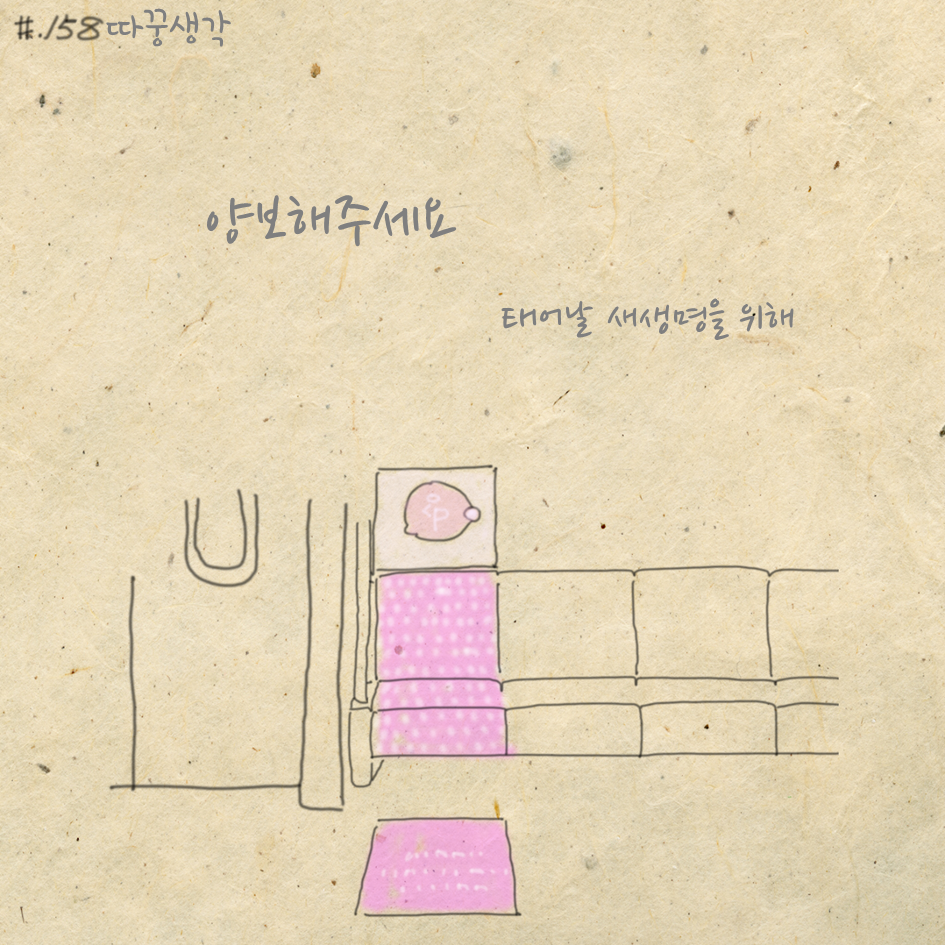 #.158 따꿍생각
양보해주세요
태어날 새생명을 위해